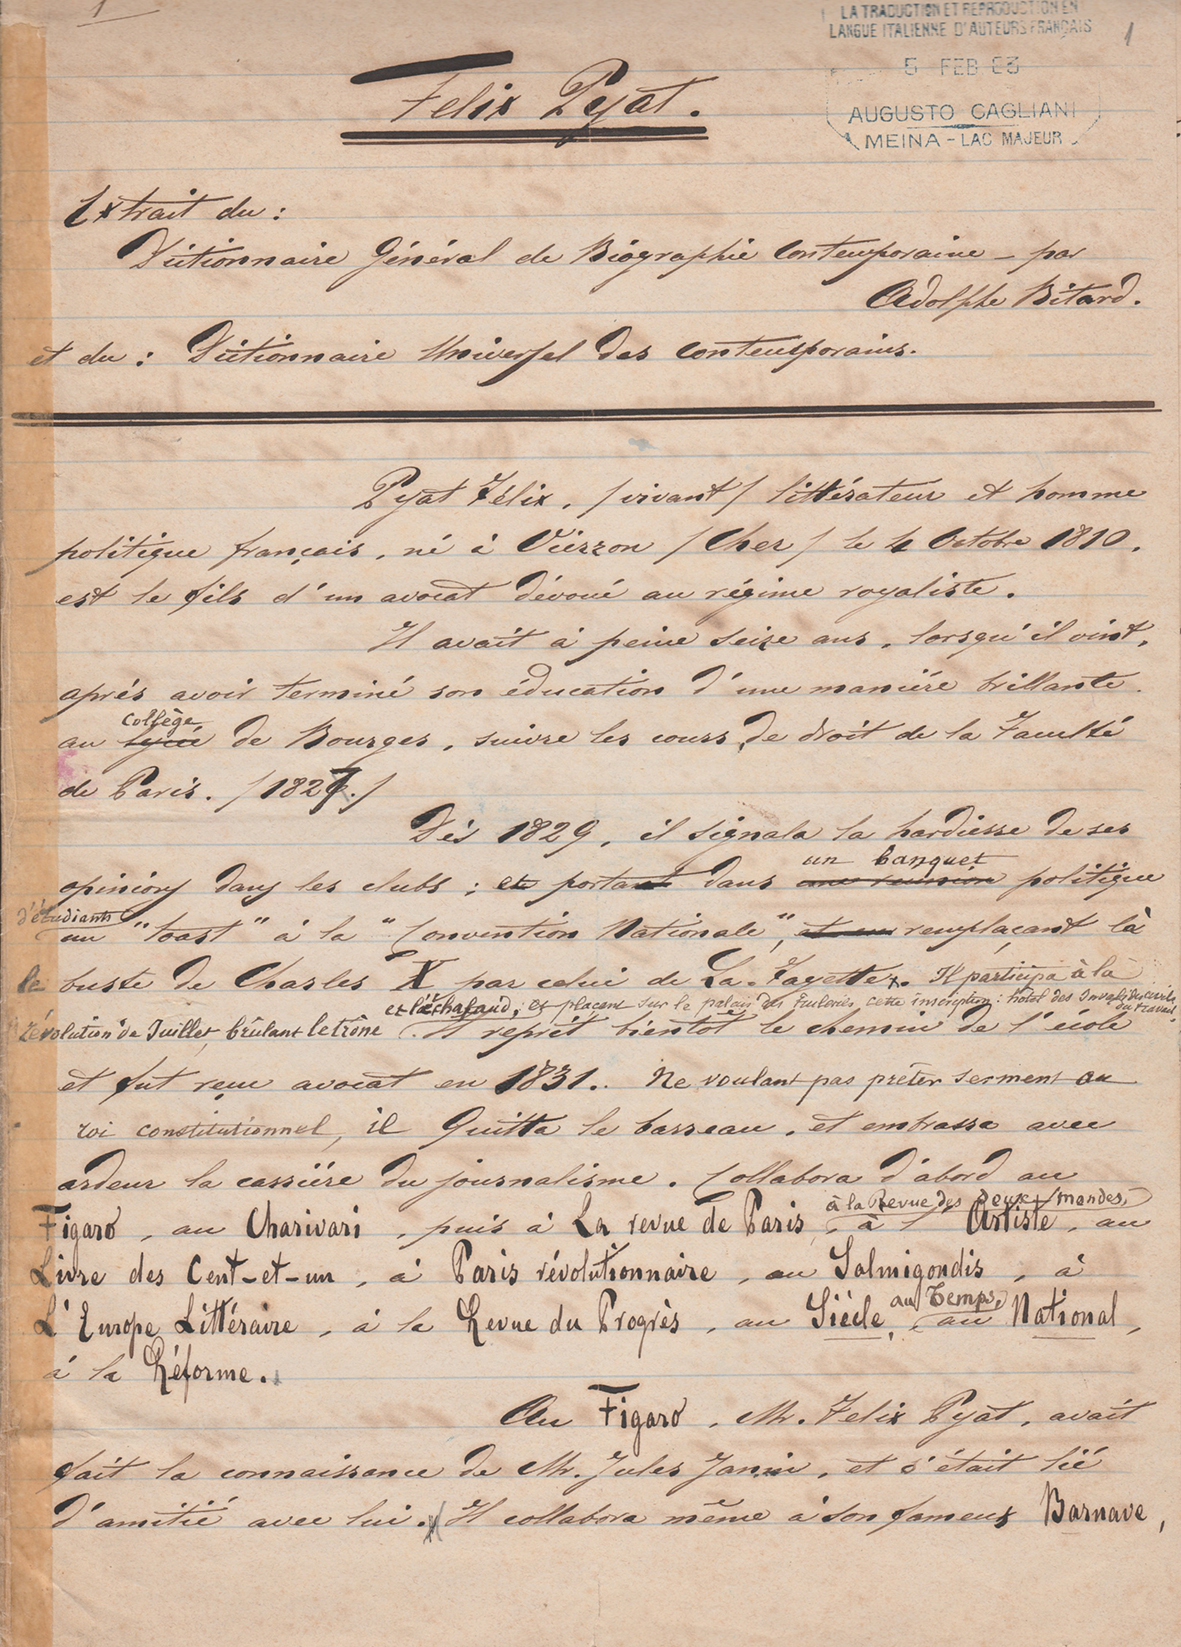 1
LA TRADUCTION ET REPRODUCTION EN
LANGUE ITALIENNE D'AUTEURS FRANÇAIS
1
5 FEB 83
AUGUSTO CAGLIANI
MEINA - LAC MAJEUR
Felix Pyat.
Extrait du :
Dictionnaire Général de Biographie Contemporaine - par
Adolphe Bitard.
et du : Dictionnaire Universel des Contemporains.
Pyat Félix, /vivant/ littérateur et homme
politique français, né à Vierzon /Cher/ le 4 Octobre 1810,
est le fils d'un avocat dévoué au régime royaliste.
Il avait à peine seize ans, lorsqu'il vint,
après avoir terminé son éducation d'une manière brillante
collège
au lycée de Bourges, suivre les cours de droit de la Faculté
de Paris. /1827./
Dès 1829, il signala la hardiesse de ses
un banquet
opinions dans les clubs ; et portant dans une réunion politique
d'étudiants
un "toast" à la "Convention Nationale", et en remplaçant là
le buste de Charles X par celui de La-Fayette. Il participa à la
et l'échafaud; et placent sur le palais des Tuileries cette inscription : hôtel des Invalides civils
du travail
révolution de Juillet, brûlant le trône Il reprit bientôt le chemin de l'école
et fut reçu avocat en 1831. Ne voulant pas prêter serment au
roi constitutionnel, il Quitta le barreau, et embrassa avec
ardeur la carrière du journalisme. Collabora d'abord au
à la Revue des Deux/mondes,
Figaro, au Charivari, puis à La revue de Paris, à l'Artiste, au
Livre des Cent-et-un, à Paris révolutionnaire, au Salmigondis, à
au Temps,
L'Europe Littéraire, à la Revue du Progrès, au Siècle, au National,
à la Réforme.
Au Figaro, Mr. Felix Pyat, avait
fait la connaissance de Mr. Jules Janin, et s'était lié
d'amitié avec lui. Il collabora même à son fameux Barnave,